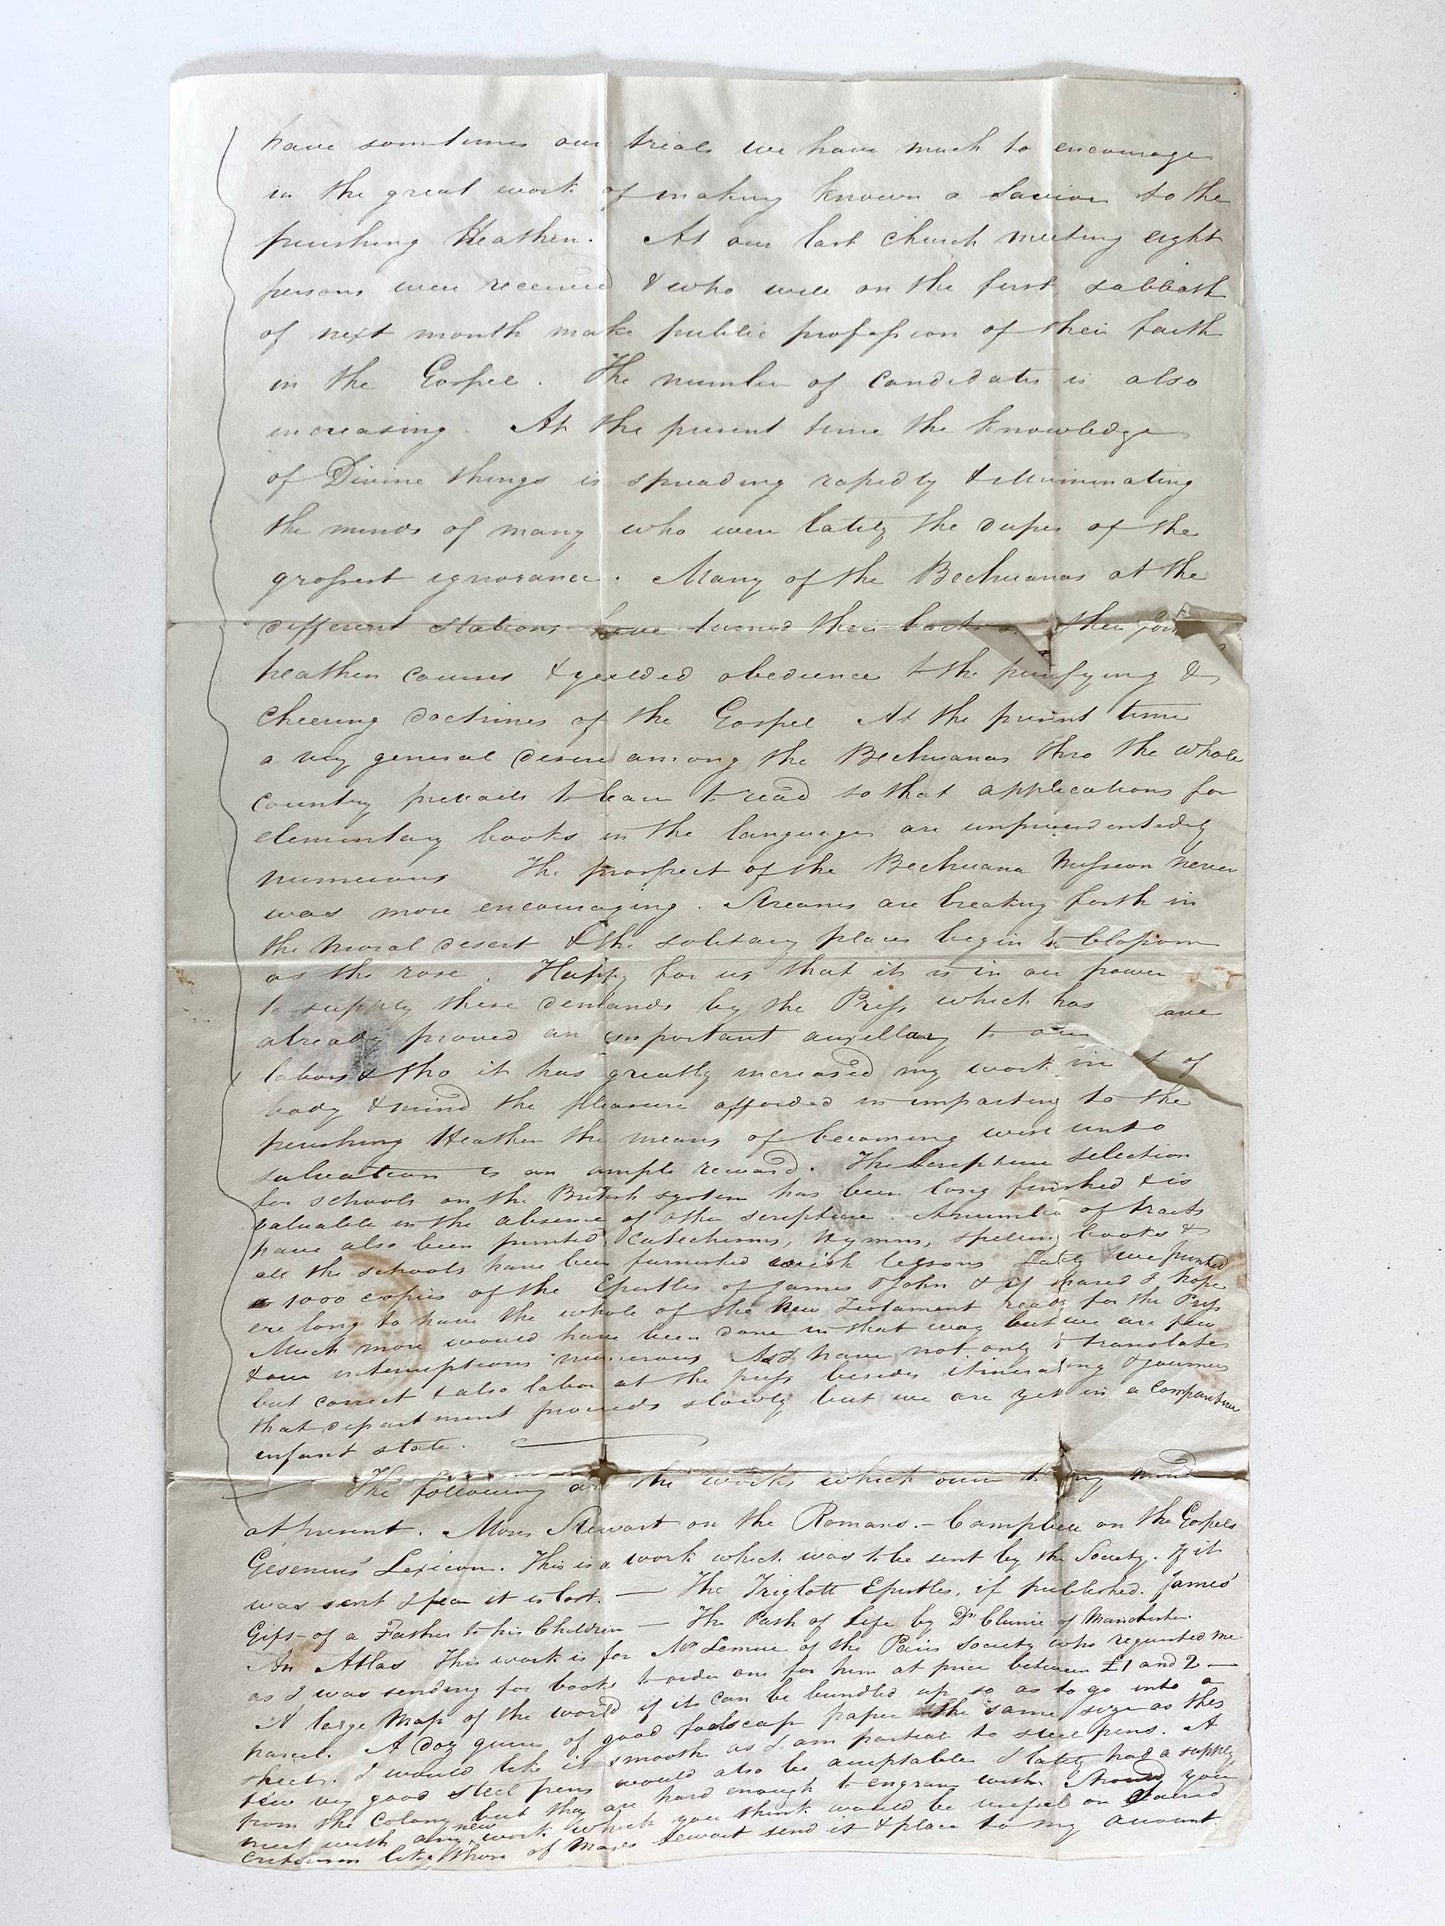 have sometimes our trials we have much to encourage
in the great work of making known a Savior to the
perishing Heathen. At our last church meeting eight
persons were received & who will on the first sabbath
of next month make public profession of their faith
in the Gospel. The number of candidates is also
increasing. At the present time the knowledge
of Divine things is spreading rapidly & illuminating
the minds of many who were lately the dupes of the
grossest ignorance. Many of the Bechuanas at the
different stations have turned their backs on their
heathen courses & yielded obedience to the purifying &
cheering doctrines of the Gospel At the present time
a very general desire among the Bechuanas thro the whole
country prevails to learn to read so that applications for
elementary books in the language are unprecedentedly
numerous The prospect of the Bechuana Mission never
was more encouraging. Streams are breaking forth in
the moral desert & the solitary places begin to blossom
as the rose. Happy for us that it is in our power
to supply these demands by the Press which has
already proved an important auxillary to our
labors & tho it has greatly increased my work in of
body & mind the pleasure afforded in imparting to the
perishing Heathen the means of becoming wise unto
salvation is an ample reward. The scripture selection
for schools on the British system has been long finished & is
valuable in the absence of other scripture. A number of tracts
have also been printed, Catechisms, Hymns, spelling books &
all the schools have been furnished with lessons Lately we printed
1000 copies of the Epistles of James & John & if spared I hope
ere long to have the whole of the New Testament ready for the Press
Much more would have been done in that way but we are few
& our interruptions numerous As I have not only to translate
but correct & also labor at the press besides itinerating & journeys
that department proceeds slowly but we are yet in a comparative
infant state.
The following are the works which occur to my mind
at present. Moses Stewart on the Romans. - Campbell on the Gospels
Gesenius' Lexicon. This is a work which was to be sent by the Society. If it
was sent I fear it is lost. — The Triglott Epistles, if published. James'
Gift of a Father to his Children — The Path of Life by Dr Clunie of Manchester.
An Atlas This work is for Mr Lemue of the Paris Society who requested me
as I was sending for books to order one for him at price between £1 and 2 —
A large Map of the world if it can be bundled up so as to go into a
parcel. A doz quires of good foolscap paper the same size as this
sheet. I would like it smooth as I am partial to steel pens. A
few very good steel pens would also be acceptable I lately had a supply
from the Colony but they are hard enough to engrave with Should you
meet with any new work which you think would be useful on sacred
criticism like those of Moses Stewart send it & place to my account